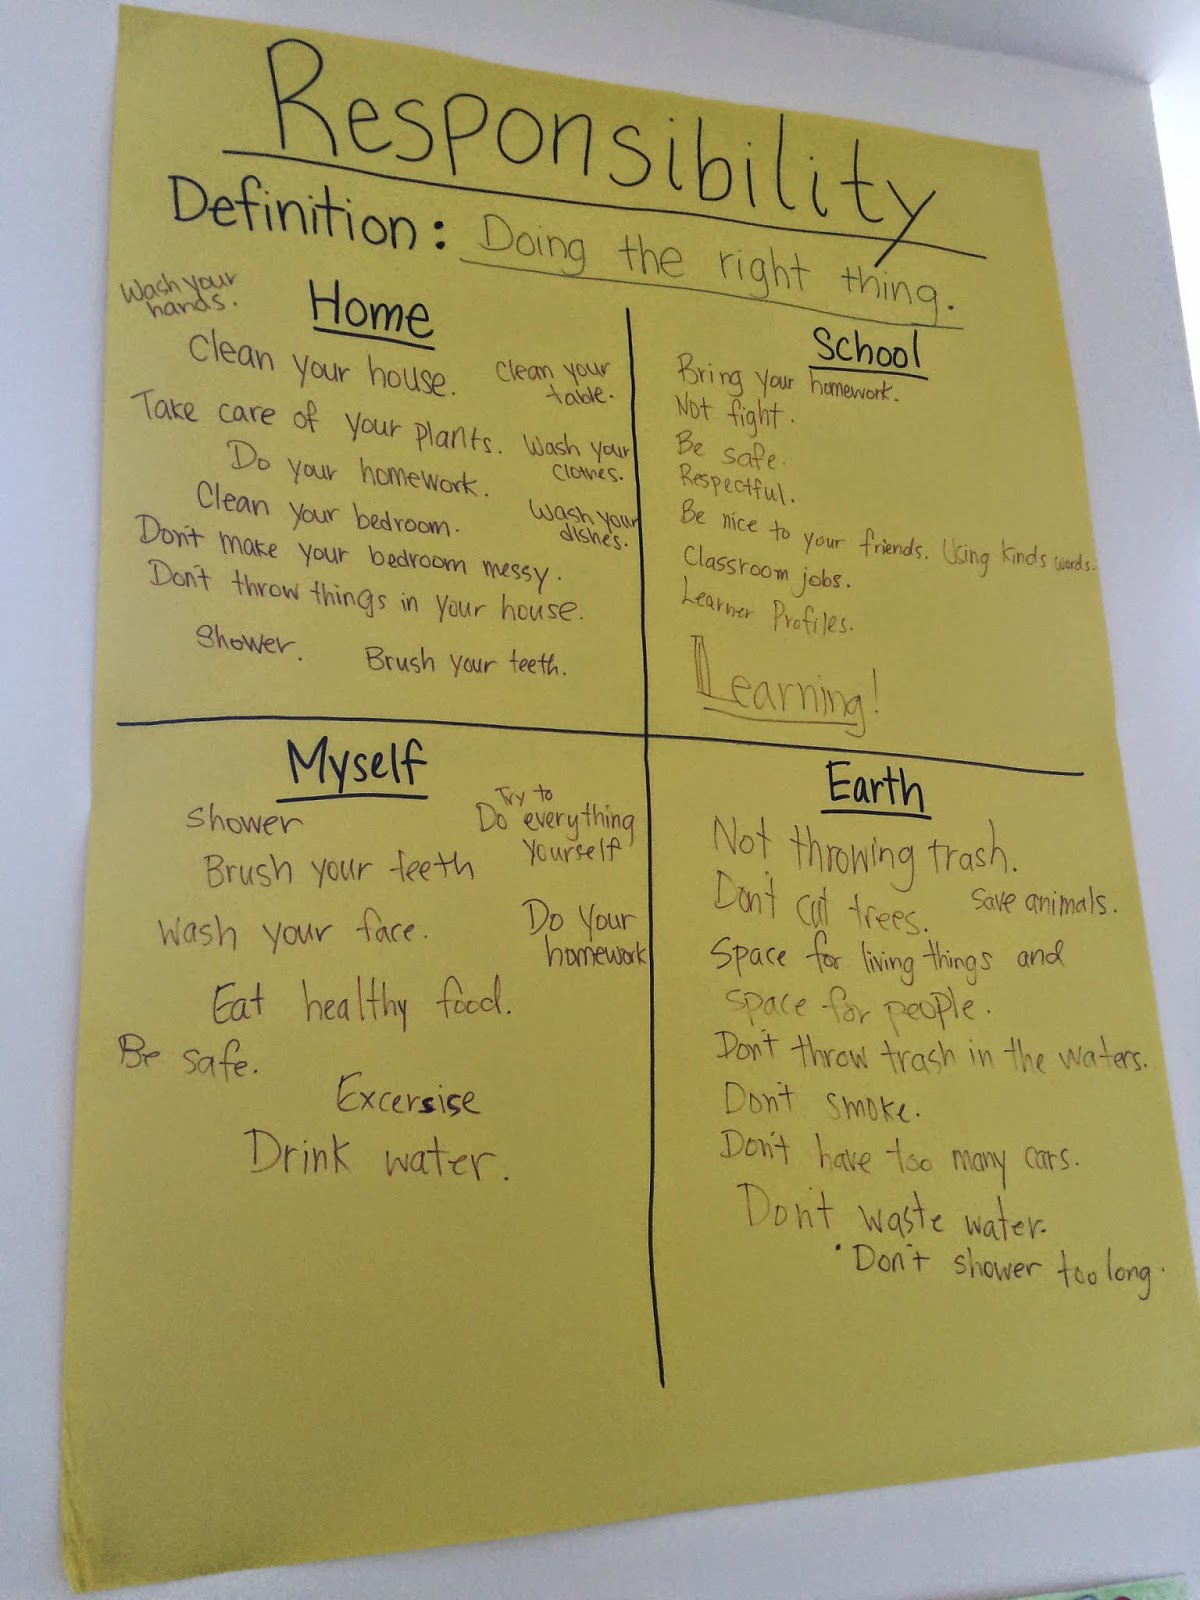 Responsibility
Definition: Doing the right thing.
Home
Wash your
hands.
Clean your house.
Clean your
table.
Take care of your plants.
Wash your
clothes.
Do your homework.
Clean your bedroom.
Wash your
dishes.
Don't make your bedroom messy.
Don't throw things in your house.
Shower.
Brush your teeth.
School
Bring your homework.
Not fight.
Be safe.
Respectful.
Be nice to your friends. Using kinds words.
Classroom jobs.
Learner Profiles.
Learning!
Myself
Shower
Try to
Do everything
yourself
Brush your teeth
Wash your face.
Do your
homework
Eat healthy food.
Be safe.
Excersise
Drink water.
Earth
Not throwing trash.
Don't cut trees.
Save animals.
Space for living things and
space for people.
Don't throw trash in the waters.
Don't smoke.
Don't have too many cars.
Don't waste water.
• Don't shower too long.